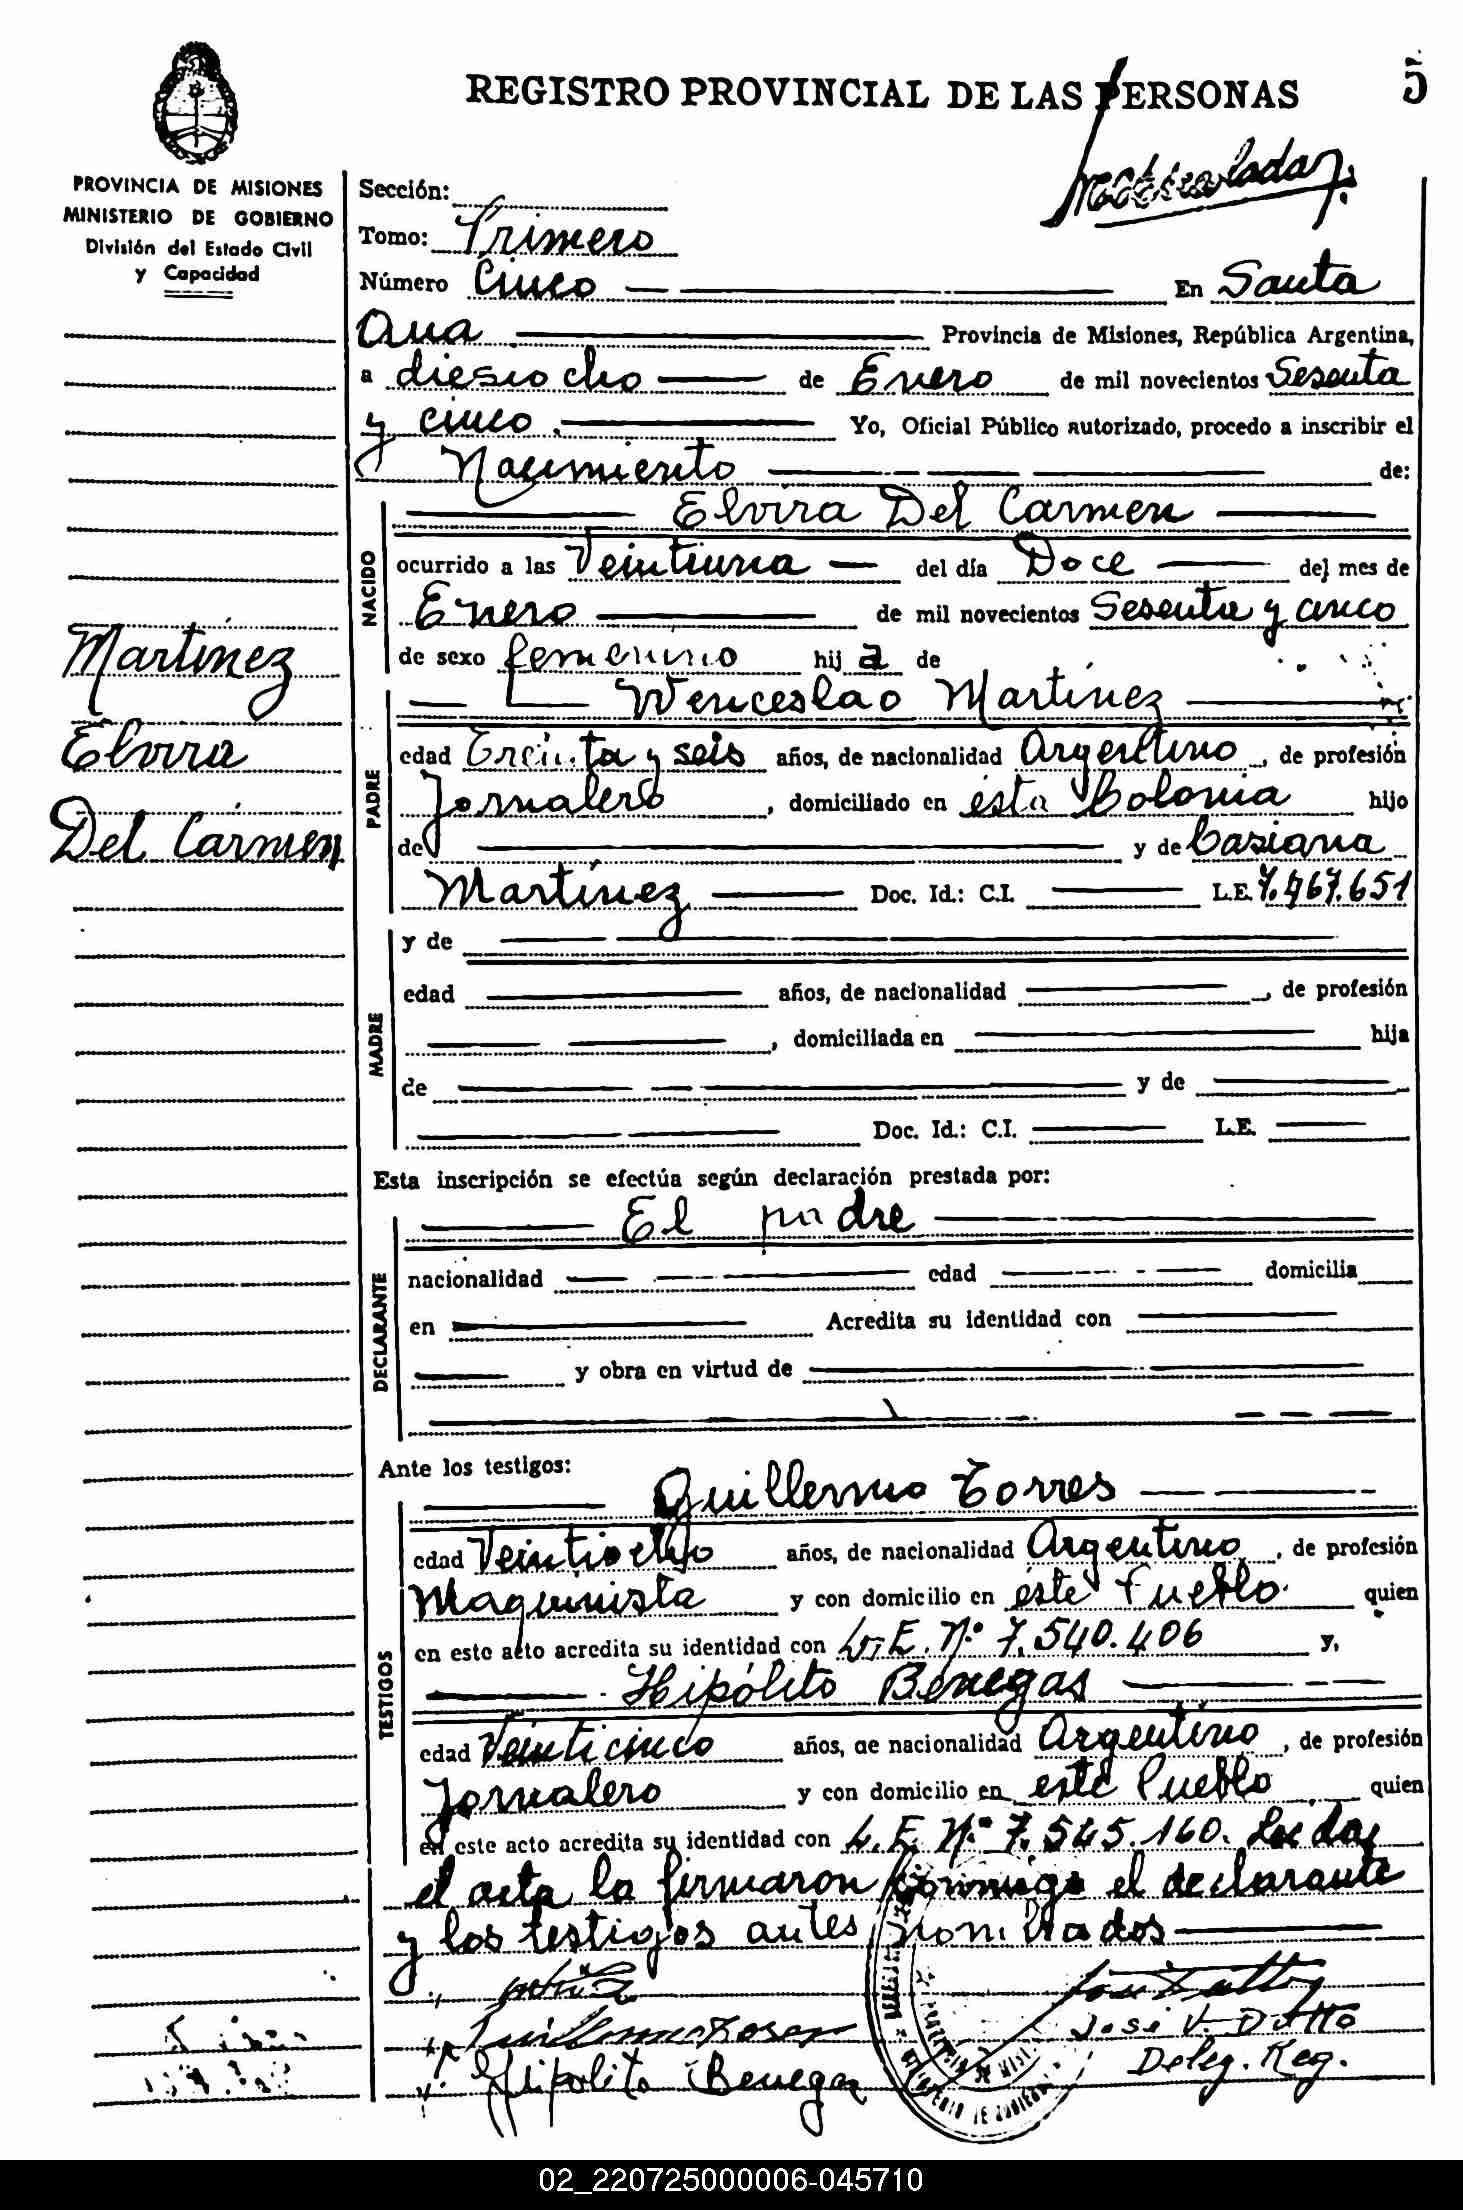 REGISTRO PROVINCIAL DE LAS PERSONAS
5
PROVINCIA DE MISIONES
MINISTERIO DE GOBIERNO
División del Estado Civil
y Capacidad
Sección:
Tomo: Primero
Número Cinco En Santa
Ana Provincia de Misiones, República Argentina,
a diesiocho de Enero de mil novecientos Sesenta
y cinco. Yo, Oficial Público autorizado, procedo a inscribir el
Nacimiento de:
NACIDO
Elvira Del Carmen
ocurrido a las Veintiuna del día Doce del mes de
Enero de mil novecientos Sesenta y cinco
de sexo femenino hija de
Martínez
Elvira
Del Carmen
PADRE
Wenceslao Martínez
edad Treinta y seis años, de nacionalidad Argentino, de profesión
Jornalero, domiciliado en ésta Colonia hijo
de y de Casiana
Martínez Doc. Id.: C.I. L.E. 7.467.651
MADRE
y de
edad años, de nacionalidad , de profesión
, domiciliada en hija
de y de
Doc. Id.: C.I. L.E.
Esta inscripción se efectúa según declaración prestada por:
DECLARANTE
El padre
nacionalidad edad domicilia
en Acredita su identidad con
y obra en virtud de
Ante los testigos:
TESTIGOS
Guillermo Torres
edad Veintiocho años, de nacionalidad Argentino, de profesión
Maquinista y con domicilio en éste Pueblo quien
en este acto acredita su identidad con L.E. Nº 7.540.406 y,
Hipólito Benegas
edad Veinticinco años, de nacionalidad Argentino, de profesión
Jornalero y con domicilio en este Pueblo quien
en este acto acredita su identidad con L.E. Nº 7.545.160. Leida
el acta la firmaron conmigo el declarante
y los testigos antes nombrados
Hipolito Benegas
José V. Dutto
Deleg. Reg.
02_220725000006-045710